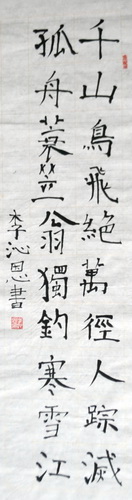 千山鳥飛絕萬徑人踪滅
孤舟蓑笠翁獨釣寒雪江
李沁恩書